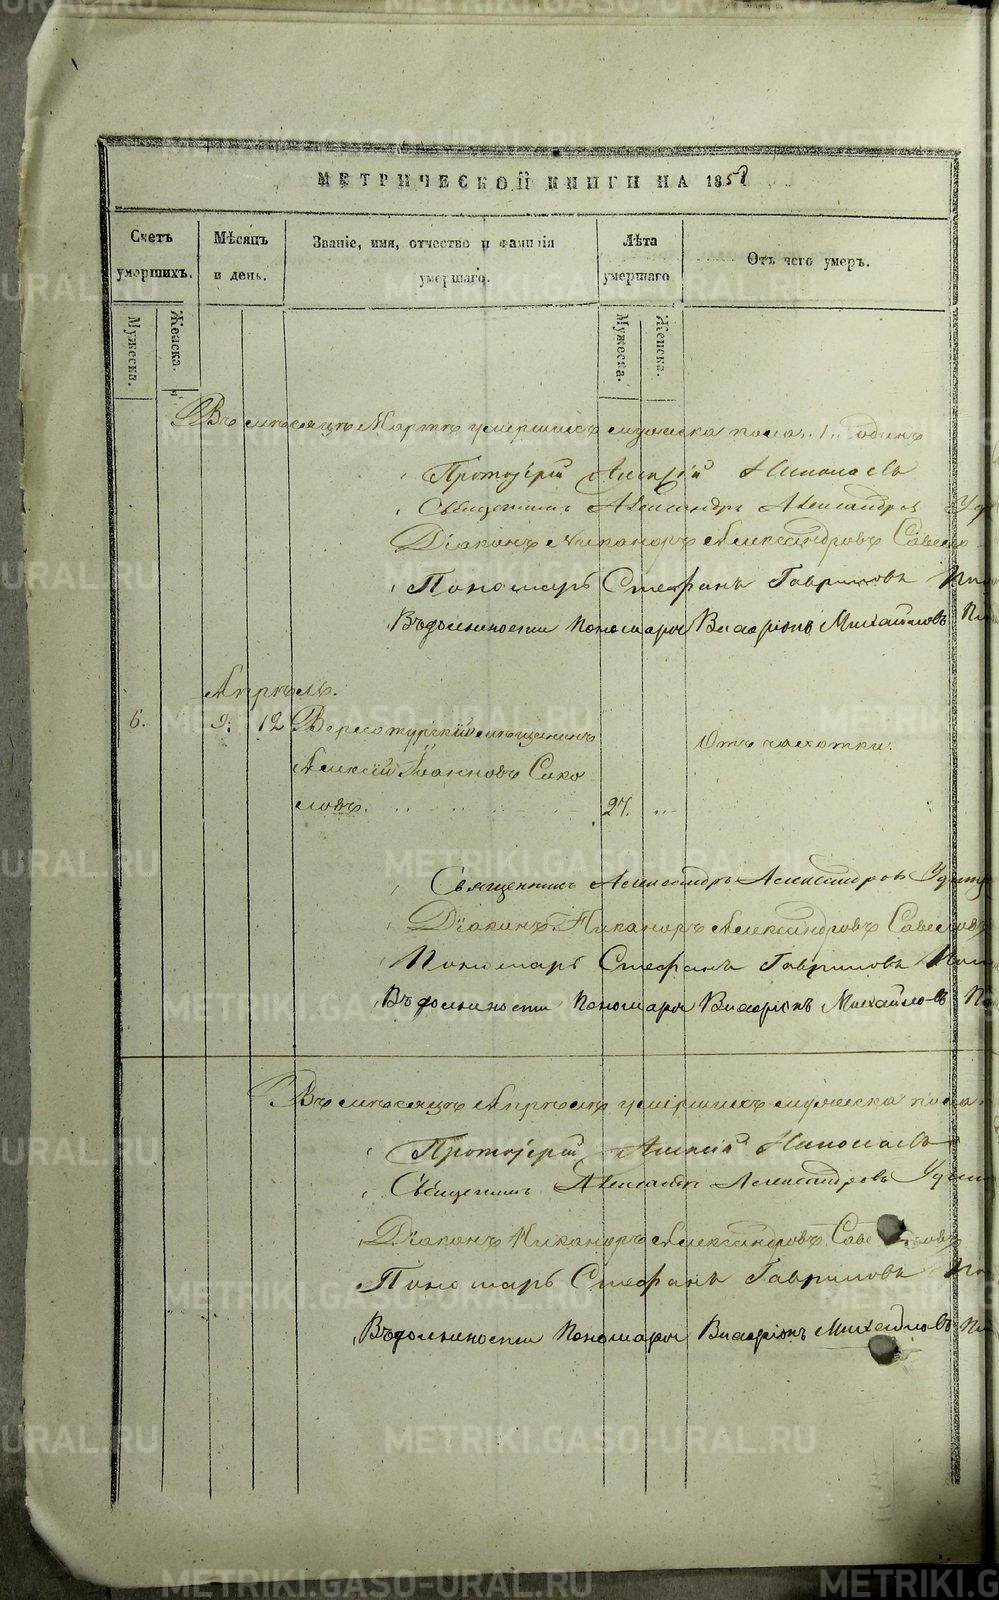 МЕТРИЧЕСКОЙ КНИГИ НА 1858
Счетъ умершихъ.
Мѣсяцъ и день.
Званіе, имя, отчество и фамилія умершаго.
Лѣта умершаго
Отъ чего умеръ.
Мужеска.
Женска.
Мужеска.
Женска.
Въ мѣсяцѣ Мартѣ умершихъ мужеска пола .1. одинъ
Протоіерей Алексій Николаевъ
Священникъ Александръ Александровъ
Діаконъ Никаноръ Александровъ
Пономарь Стефанъ Гавриловъ
Въ должности Пономаря Висаріонъ Михайловъ
Апрѣль.
6. 9. 12 Верхотурскій мѣщанинъ
Отъ чахотки.
Алексій Іоанновъ Соко
ловъ. 27.
Священникъ Александръ Александровъ
Діаконъ Никаноръ Александровъ
Пономарь Стефанъ Гавриловъ
Въ должности Пономаря Висаріонъ Михайловъ
Въ мѣсяцѣ Апрѣлѣ умершихъ мужеска пола
Протоіерей Алексій Николаевъ
Священникъ Александръ Александровъ
Діаконъ Никаноръ Александровъ
Пономарь Стефанъ Гавриловъ
Въ должности Пономаря Висаріонъ Михайловъ
METRIKI.GASO-URAL.RU